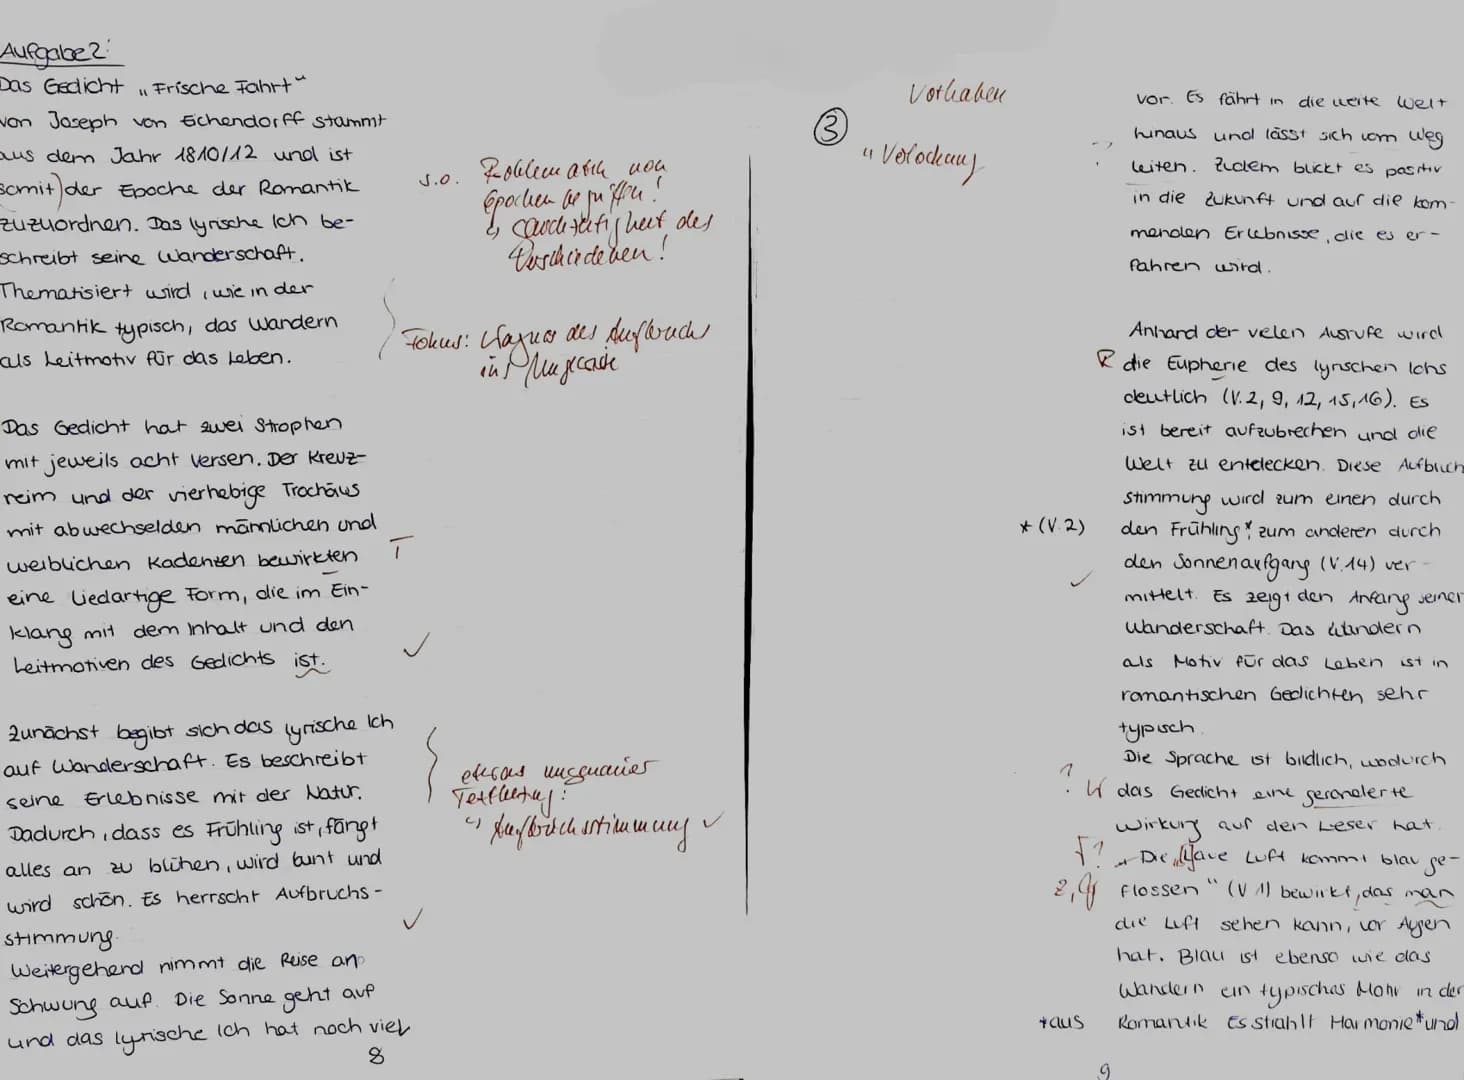 Aufgabe 2:
Das Gedicht „Frische Fahrt“
von Joseph von Eichendorff stammt
aus dem Jahr 1810/12 und ist
somit) der Epoche der Romantik
zuzuordnen. Das lyrische Ich be-
schreibt seine Wanderschaft.
Thematisiert wird, wie in der
Romantik typisch, das Wandern
als Leitmotiv für das Leben.
s.o. Problematik von
Epochenbegriffen!
↳ des
Verschiedenen!
Fokus: Wagnis des Aufbruchs
ins Ungewisse
Das Gedicht hat zwei Strophen
mit jeweils acht Versen. Der Kreuz-
reim und der vierhebige Trochäus
mit abwechselden männlichen und
weiblichen Kadenzen bewirkten
T
eine liedartige Form, die im Ein-
klang mit dem Inhalt und den
Leitmotiven des Gedichts ist.
✓
Zunächst begibt sich das lyrische Ich
auf Wanderschaft. Es beschreibt
seine Erlebnisse mit der Natur.
Dadurch, dass es Frühling ist, fängt
alles an zu blühen, wird bunt und
wird schön. Es herrscht Aufbruchs-
stimmung.
✓
etwas ungenauer
Textbezug:
↳ Aufbruchsstimmung ✓
Weitergehend nimmt die Reise an
Schwung auf. Die Sonne geht auf
und das lyrische Ich hat noch viel
8
3
Vorhaben
"
vor. Es fährt in die weite Welt
hinaus und lässt sich vom Weg
?
leiten. Zudem blickt es positiv
in die Zukunft und auf die kom-
menden Erlebnisse, die es er-
fahren wird.
Anhand der vielen Ausrufe wird
R die Eupherie des lyrischen Ichs
deutlich (V.2, 9, 12, 15, 16). Es
ist bereit aufzubrechen und die
Welt zu entdecken. Diese Aufbruch
stimmung wird zum einen durch
* (V.2) den Frühling*, zum anderen durch
den Sonnenaufgang (V.14) ver-
✓
mittelt. Es zeigt den Anfang seiner
Wanderschaft. Das Wandern
als Motiv für das Leben ist in
romantischen Gedichten sehr
typisch.
Die Sprache ist bildlich, wodurch
? W das Gedicht eine geranderte
Wirkung auf den Leser hat.
Die „Laue Luft kommt blau ge-
Z, flossen“ (V.1) bewirkt, das man
die Luft sehen kann, vor Augen
hat. Blau ist ebenso wie das
Wandern ein typisches Motiv in der
*aus Romantik Es strahlt Harmonie* und
9